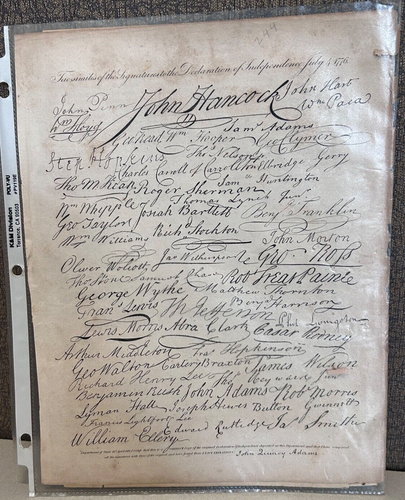 Facsimiles of the Signatures to the Declaration of Independence July 4 1776
John Penn John Hancock John Hart
Wm Floyd Wm Paca
Geo Read Wm Hooper Saml Adams Geo Clymer
Step Hopkins Thos Nelson jr
Charles Carroll of Carrollton Elbridge Gerry
Tho M Kean Roger Sherman Sam Huntington
Wm Whipple Thomas Lynch Junr
Geo Taylor Josiah Bartlett Benj Franklin
Wm Williams Richd Stockton John Morton
Oliver Wolcott Jno Witherspoon Geo Ross
Thos Stone Samuel Chase Robt Treat Paine
George Wythe Matthew Thornton
Frans Lewis Th Jefferson Benj Harrison
Lewis Morris Abra Clark Caesar Rodney Phil Livingston
Arthur Middleton Fras Hopkinson
Geo Walton Carter Braxton James Wilson
Richard Henry Lee Thos Heyward Junr
Benjamin Rush John Adams Robt Morris
Lyman Hall Joseph Hewes Button Gwinnett
Francis Lightfoot Lee Edward Rutledge Jas Smith
William Ellery
John Quincy Adams
K&M Division POLY-VU
Torrance, CA 90503